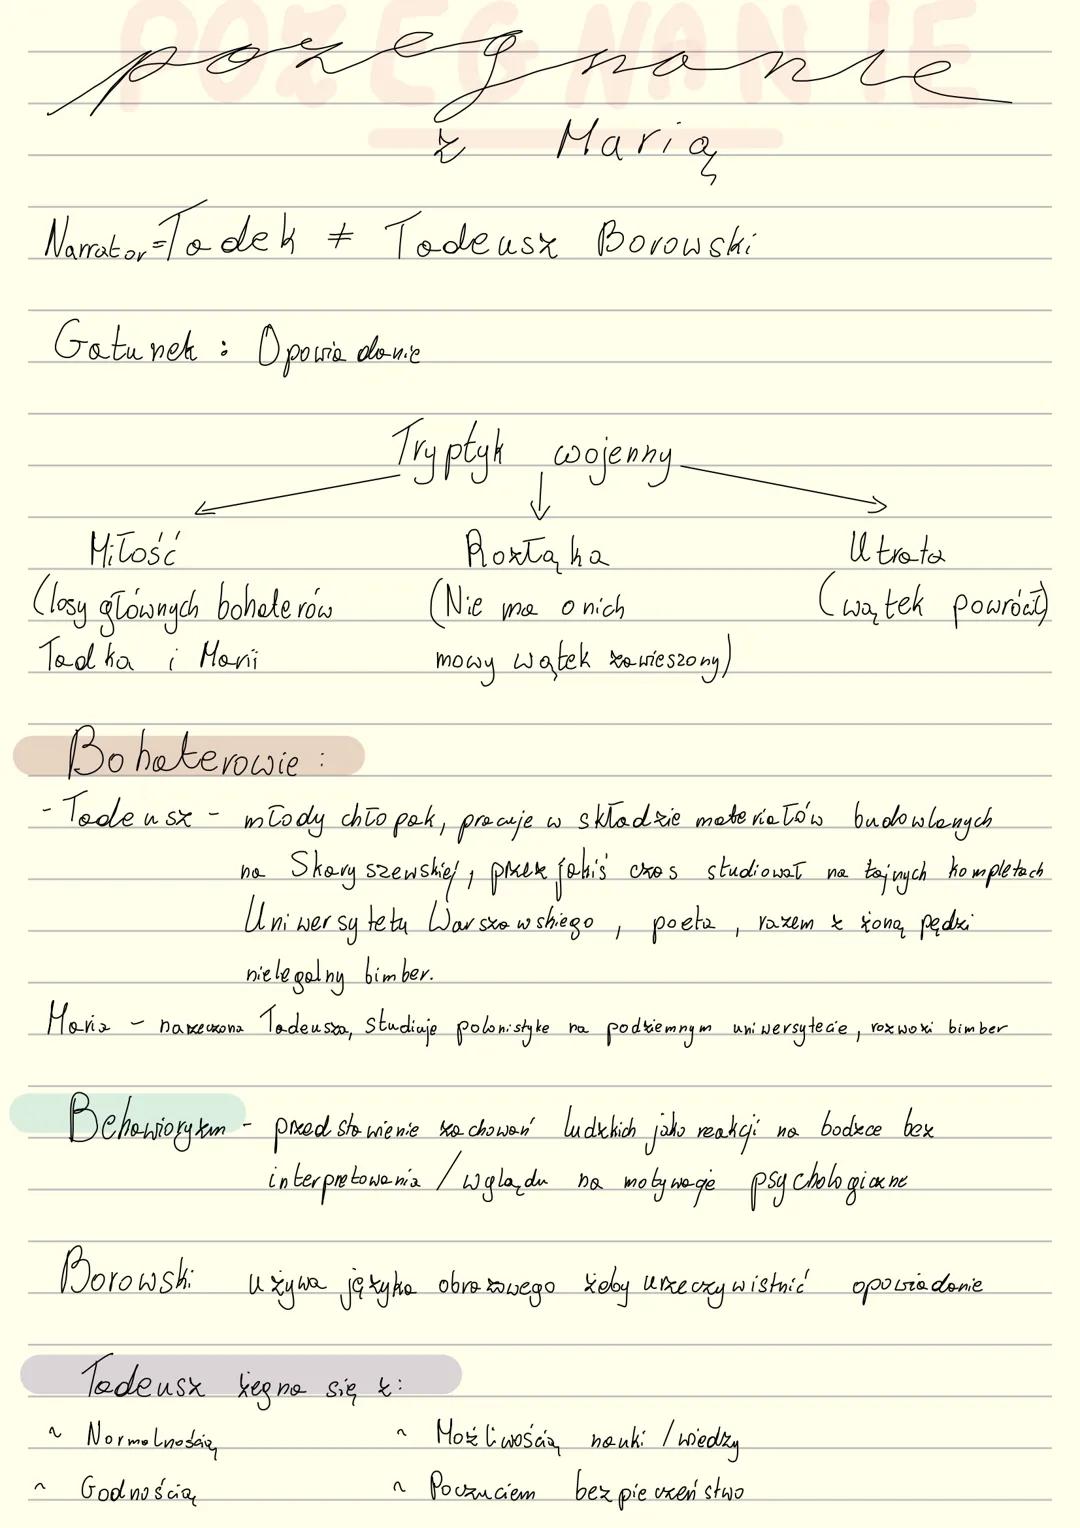 POŻEGNANIE
pożegnanie
z Marią
Narrator=Tadek ≠ Tadeusz Borowski
Gatunek : Opowiadanie
Tryptyk wojenny
Miłość Rozłąka Utrata
(losy głównych bohaterów (Nie ma o nich (wątek powrócił)
Tadka i Marii mowy wątek zawieszony)
Bohaterowie :
- Tadeusz - młody chłopak, pracuje w składzie materiałów budowlanych
na Skaryszewskiej, przez jakiś czas studiował na tajnych kompletach
Uniwersytetu Warszawskiego, poeta, razem z żoną pędzi
nielegalny bimber.
Maria - narzeczona Tadeusza, studiuje polonistykę na podziemnym uniwersytecie, rozwozi bimber
Behawioryzm - przedstawienie zachowań ludzkich jako reakcji na bodźce bez
interpretowania / wglądu na motywacje psychologiczne
Borowski używa języka obrazowego żeby urzeczywistnić opowiadanie
Tadeusz żegna się z:
~ Normalnością ~ Możliwością nauki / wiedzy
~ Godnością ~ Poczuciem bezpieczeństwo